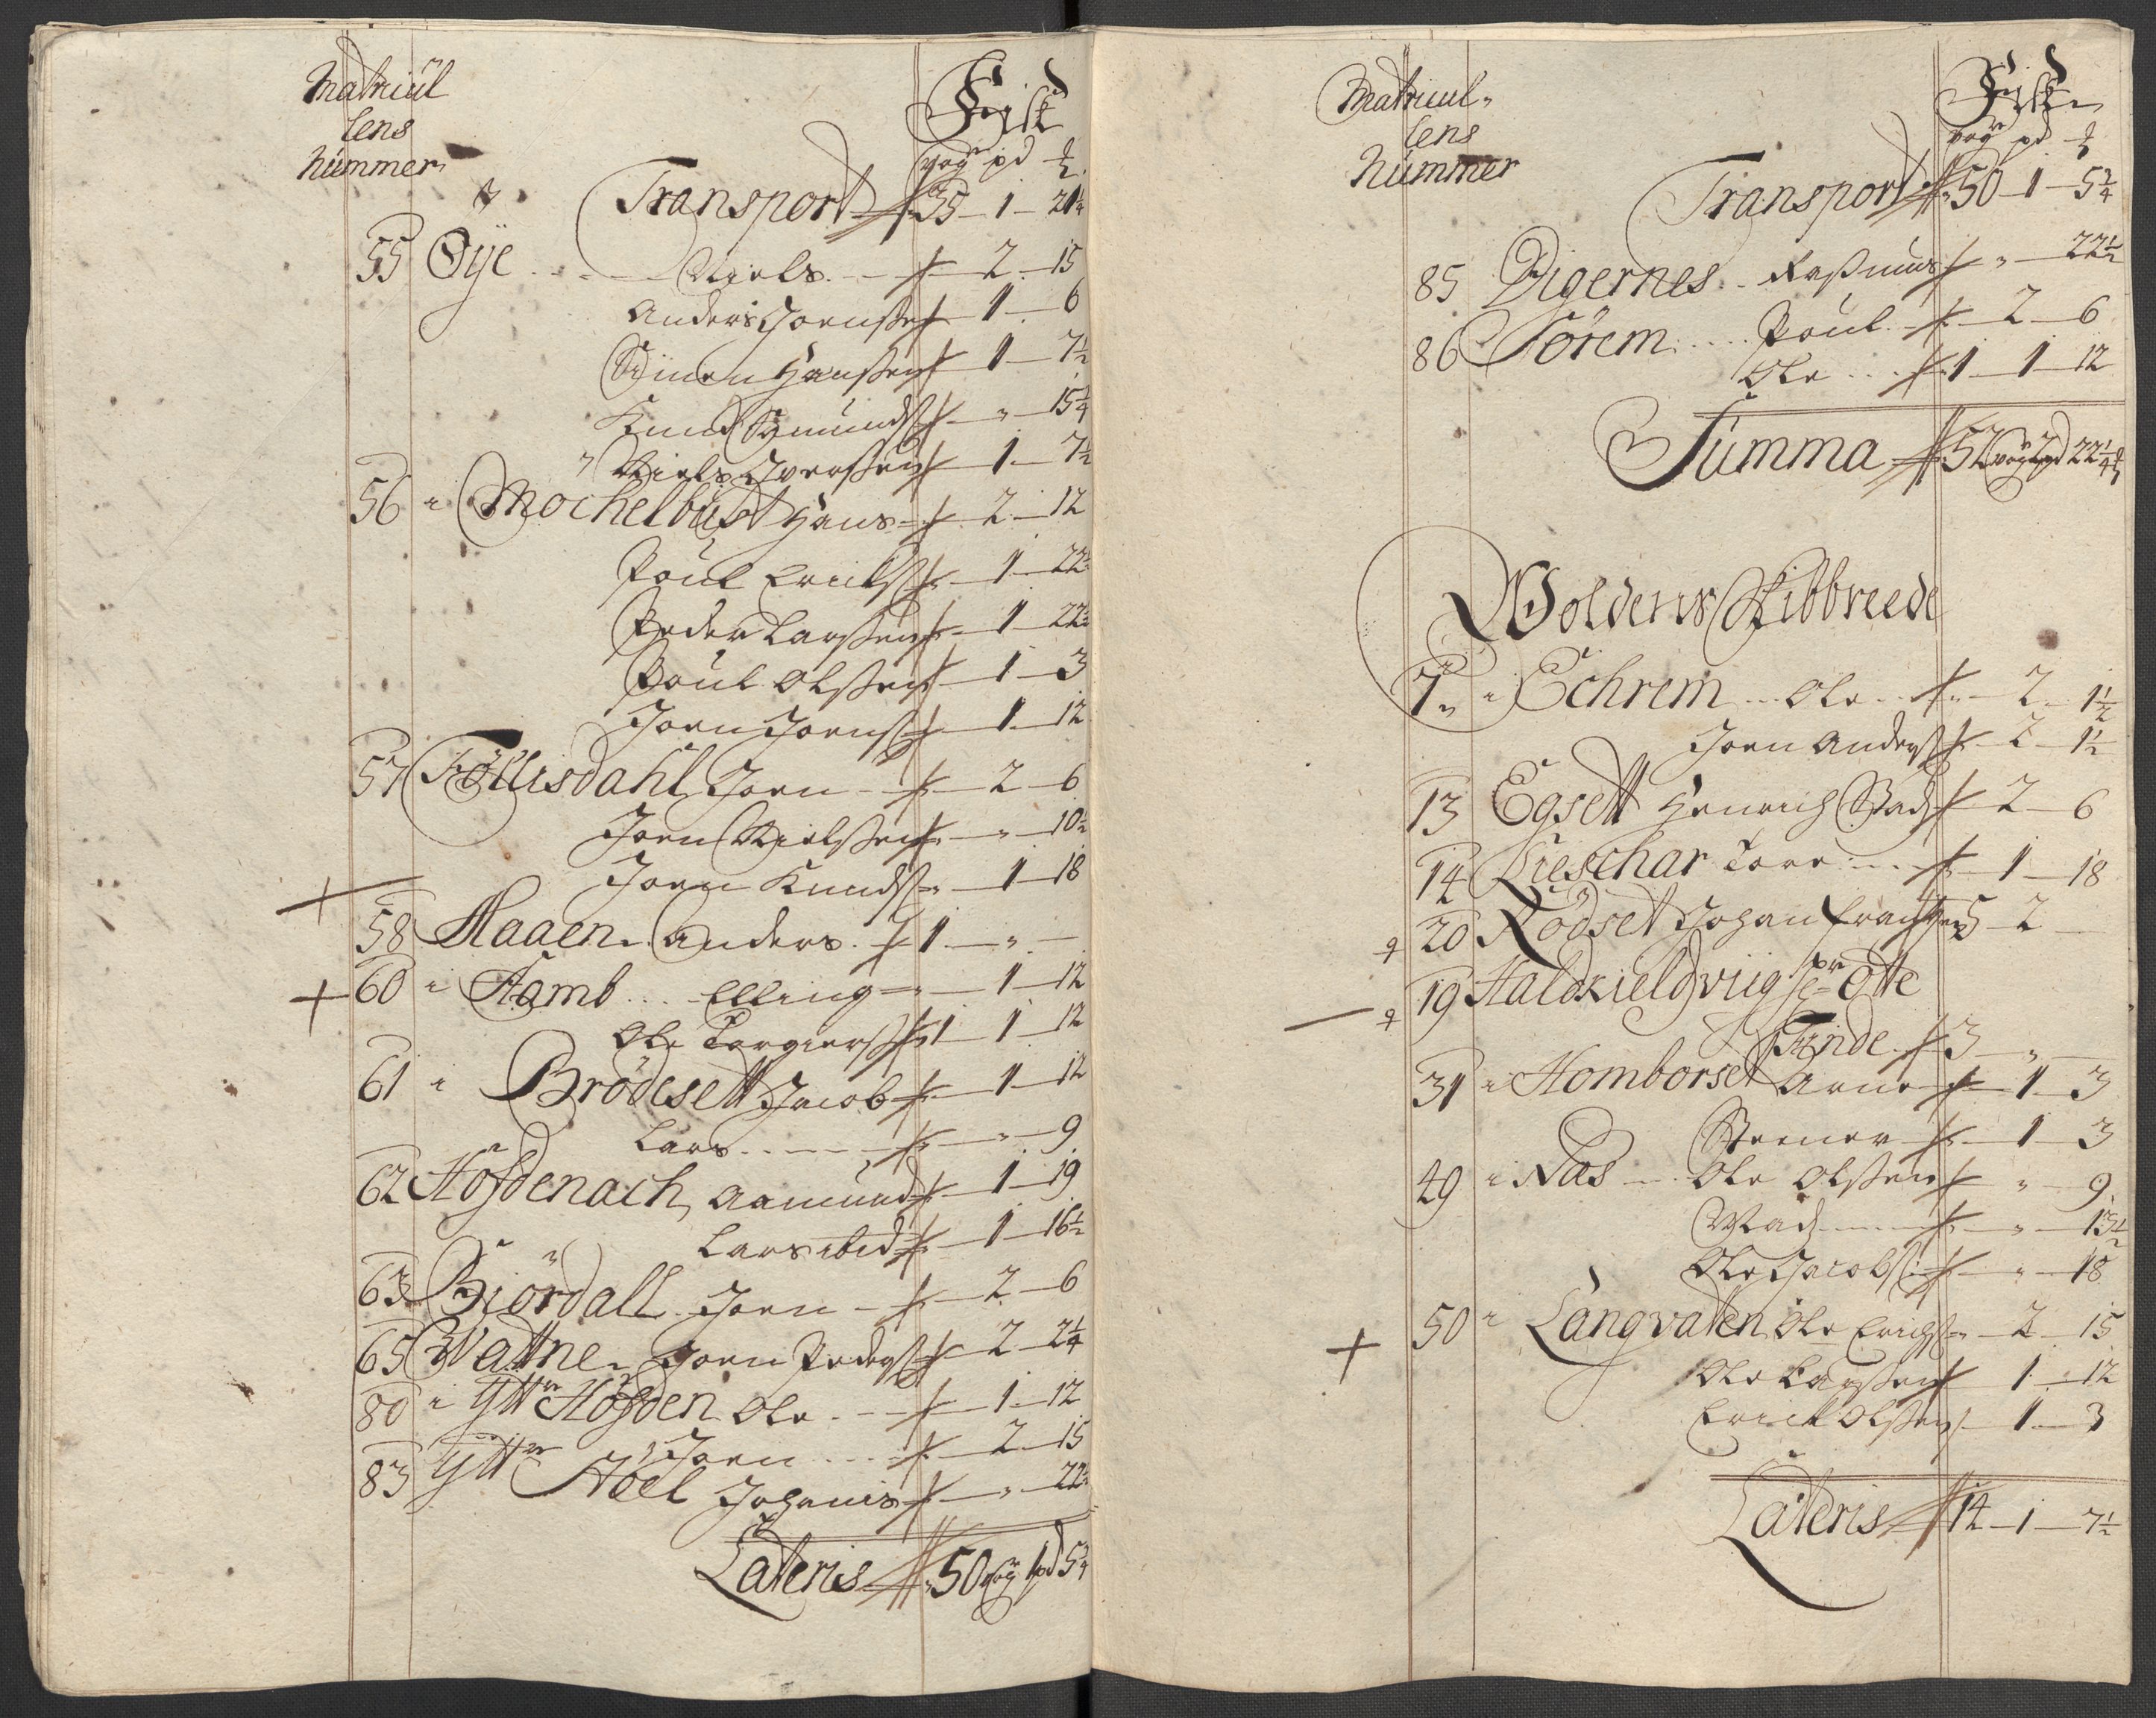 Matricul
lens
Nummer
Fisk
vog pd ℔
Transport 35 - 1 - 21¼
55 Øÿe Niels 2 - 15
Anders Joensen 1 - 6
Simen Hanssen 1 - 7½
Knud Symunds " - 15¾
Niels Iverssen 1 - 7½
56 i Mochelbust Hans 2 - 12
Poul Erichs 1 - 22½
Peder Larssen 1 - 22½
Poul Olssen 1 - 3
Joen Joens 1 - 12
57 Follisdahl Joen 2 - 6
Joen Nielssen " - 10½
Joen Knuds 1 - 18
58 Haaen Anders 1 - " -
60 i Hamb Elling 1 - 12
Ole Torgierss 1 - 1 - 12
61 i Brödesett Jacob 1 - 12
Lars " - 9
62 Höfdenach Aamund 1 - 19
Lars ibid 1 - 16½
63 Biördall Joen 2 - 6
65 Wattne Joen Peders 2 - 2¼
80 i Ytter Höfden Ole 1 - 12
Joen 2 - 15
83 Ytter Hoel Johanis " - 22½
Lateris 50 vog 1 pd 5¾
Matricul
lens
Nummer
Fisk
vog pd ℔
Transport 50 - 1 - 5¾
85 Digernes Rasmus " - 22½
86 Sörem Poul 2 - 6
Ole 1 - 1 - 12
Summa 52 vog 2 pd 22¼ ℔
Woldens Skibbreede
7 i Echrem Ole 2 - 1½
Joen Anders 2 - 1½
13 Egsett Henrich Stad 2 - 6
14 Lieschar Tore 1 - 18
20 Rödset Johan 5 - 2
19 Haldkieldzviig Sr Otte
Finde 3 - "
31 i Homborset Arne 1 - 3
Stener 1 - 3
49 i Nas Ole Olssen " - 9
Mads " - 13½
Ole Jacobs " - 18
50 i Langvaten Ole Erichs 2 - 15
Ole Larssen 1 - 12
Erick Olssen 1 - 3
Lateris 14 - 1 - 7½